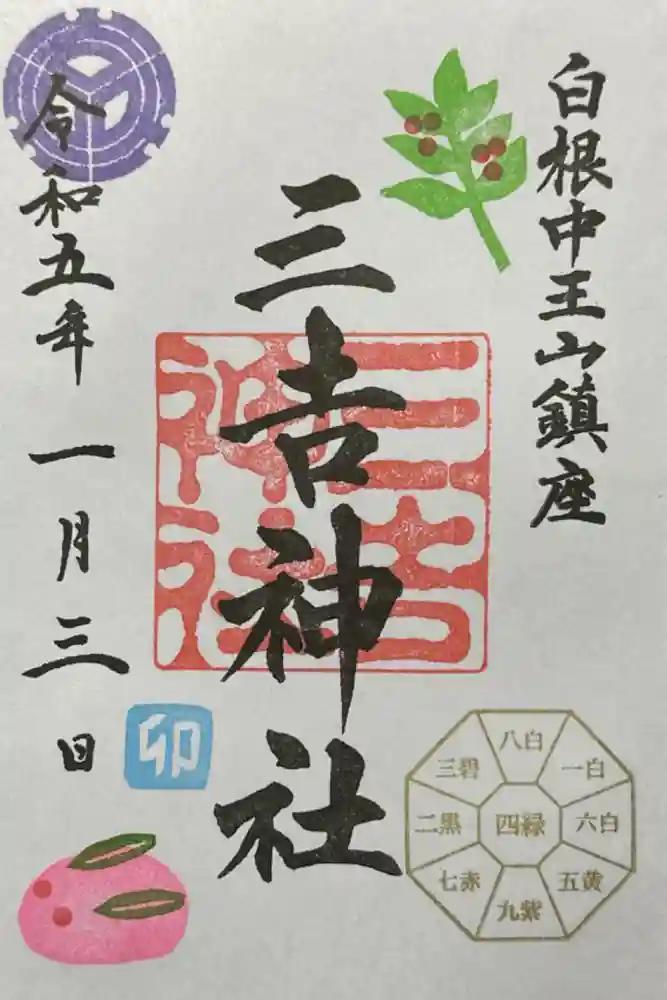 白根中王山鎮座
三吉神社
三吉神社
令和五年一月三日
卯
八白
一白
六白
五黄
九紫
七赤
二黒
三碧
四緑